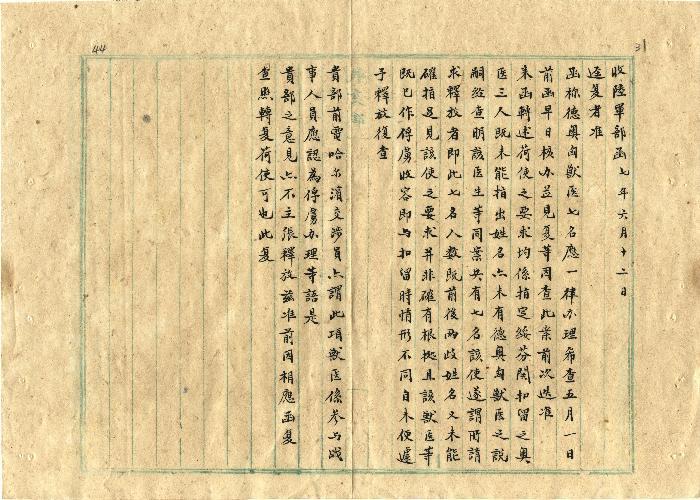 44
31
收陸軍部函七年六月十二日
逕复者准
函称德奥匈獸医七名應一律办理希查五月一日
前函早日核办並見复等因查此案前次迭准
來函轉述荷使之要求均係指定綏芬関扣留之奥
医三人既未能指出姓名亦未有德奥匈獸医之說
嗣经查明該医生等同案共有七名該使遂謂所請
求釋放者即此七名人數既前後两歧姓名又未能
確指足見該使之要求并非確有根据且該獸医等
既已作俘虜收容即与扣留時情形不同自未便遽
予釋放復查
貴部前電哈尔濱交涉員亦謂此項獸医係参与战
事人員應認為俘虜办理等語是
貴部之意見亦不主張釋放兹准前因相應函复
查照轉复荷使可也此复